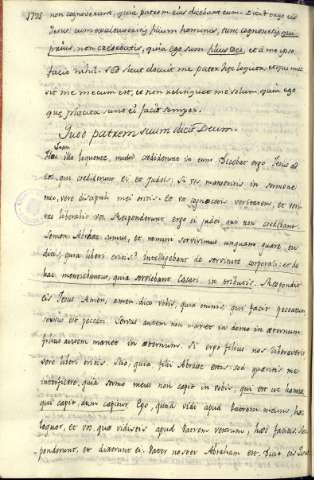 non cognoverunt, quia patrem eius dicebant eum. Dicit ergo eis
Iesus: cum exaltaveritis filium hominis, tunc cognoscetis qui
prius non credebatis, quia ego sum filius Dei, et a me ipso
facio nihil. Sed sicut docuit me pater hoc loquor, et qui me
sit me mecum est, et non relinquet me solum, quia ego
que placita sunt ei facio semper.
Quod patrem suum dicit Deum.
Haec illo loquente, multi crediderunt in eum. Dicebat ergo Iesus ad
eos, qui crediderunt ei ex Iudeis, Si vos manseritis in sermone
meo, vere discipuli mei eritis. Et vos cognoscetis veritatem, et veri
tas liberabit vos. Responderunt ergo ei Iudei qui non credebant.
Semen Abrahe sumus, et nemini servivimus unquam quare, tu
dicis, quia liberi eritis? Intelligebant de servitute corporali: et de
hac
quia
Respondit
eis Iesus Amen, Amen dico vobis, quia omnis, qui facit peccatum
servus est peccati. Servus autem non manet in domo in aeternum
filius autem manet in aeternum. Si ergo filius vos liberaverit
vere liberi eritis. Scio, quia filii Abrahe estis, sed queritis me
interficere, quia sermo meus non capit in vobis, qui est
qui capit, dum capitur. Ego, quod vidi apud Patrem meum, hoc
loquor, et vos que vidistis apud Patrem vestrum, haec facitis. Res
ponderunt, et dixerunt ei. Pater noster Abraham est. Dicit eis Iesus